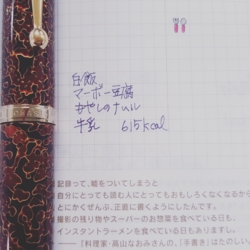 白飯
マーボー豆腐
もやしのナムル
牛乳 615kcal
記録って、嘘をついてしまうと
自分にとっても読む人にとってもおもしろくなくなるから
とにかくぜんぶ、正直に書くようにしたんです。
撮影の残り物やスーパーのお惣菜を食べている日も、
インスタントラーメンを食べている日もありますし。
──「料理家・高山なおみさんの、「手書き」はたのしい